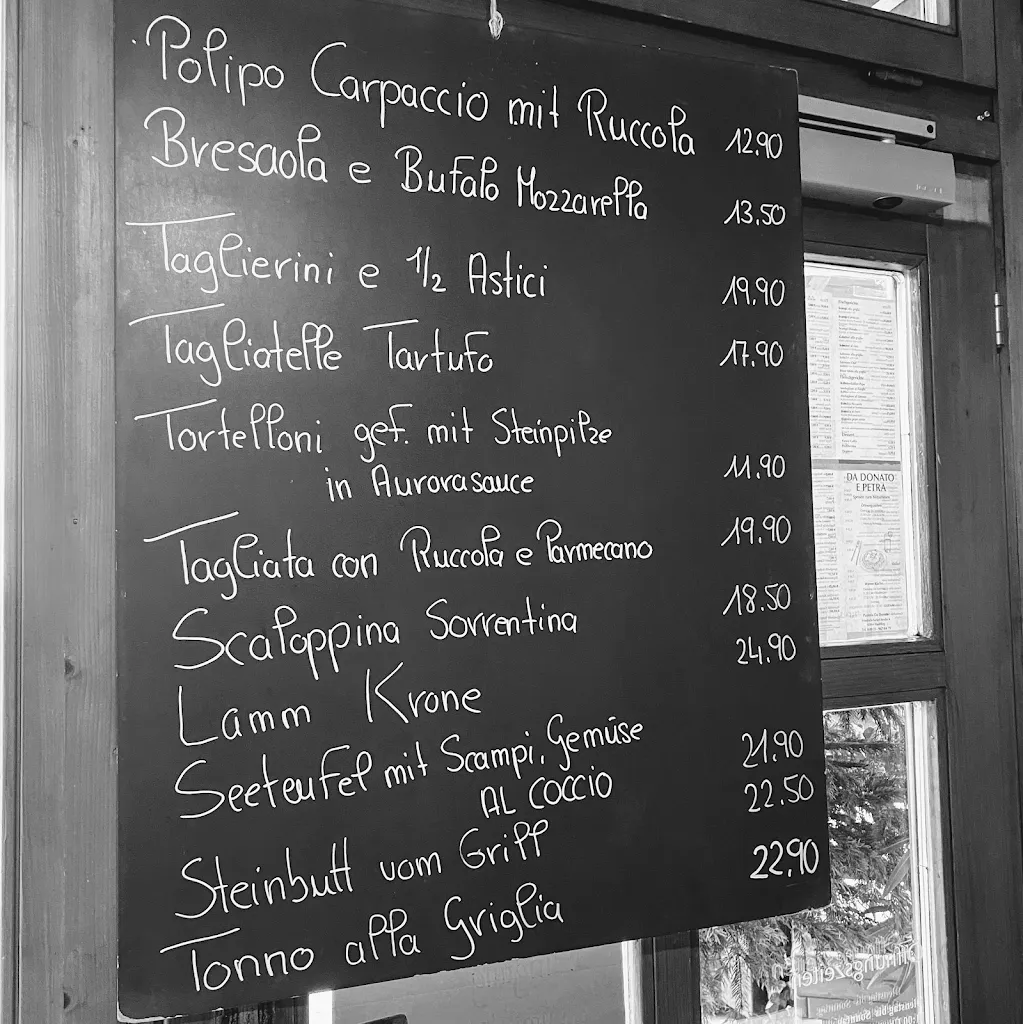 Polipo Carpaccio mit Ruccola 12.90
Bresaola e Bufalo Mozzarella 13.50
Taglierini e 1/2 Astici 19.90
Tagliatelle Tartufo 17.90
Tortelloni gef. mit Steinpilze
in Aurorasauce 11.90
Tagliata con Ruccola e Parmecano 19.90
Scaloppina Sorrentina 18.50
Lamm Krone 24.90
Seeteufel mit Scampi, Gemüse 21.90
AL COCCIO
Steinbutt vom Grill 22.50
Tonno alla Griglia 22.90
DA DONATO
E PETRA